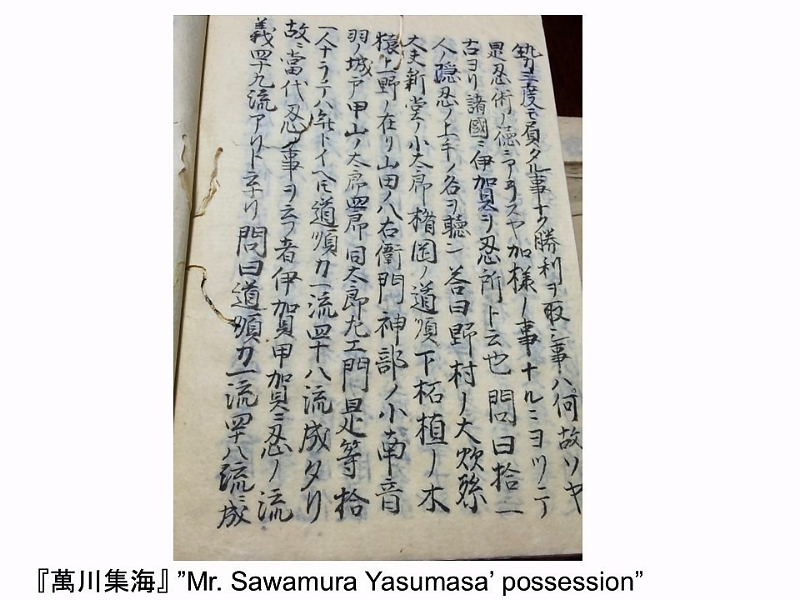 度モ負タル事ナク勝利ヲ取シ事ハ何故ソヤ
是忍術ノ徳ニアラスヤ加様ノ事ナルニヨツテ
古ヨリ諸國ニ伊賀ヲ忍所ト云也 問曰拾一
人ノ隠忍ノ上手ノ名ヲ聽ン 答曰野村ノ大炊孫
大夫新堂ノ小太郎楯岡ノ道順下柘植ノ木
猿上野ノ在リ山田ノ八右衛門神部ノ小南音
羽ノ城戸甲山ノ太郎四郎同太郎左エ門是等拾
一人ナラテハ無トイヘ𪜈道順カ一流四十八流成タリ
故ニ當代忍ノ事ヲ云フ者伊賀甲賀ニ忍ノ流
義四十九流アリト云リ 問曰道順カ一流四十八流ニ成
『萬川集海』”Mr. Sawamura Yasumasa’ possession”